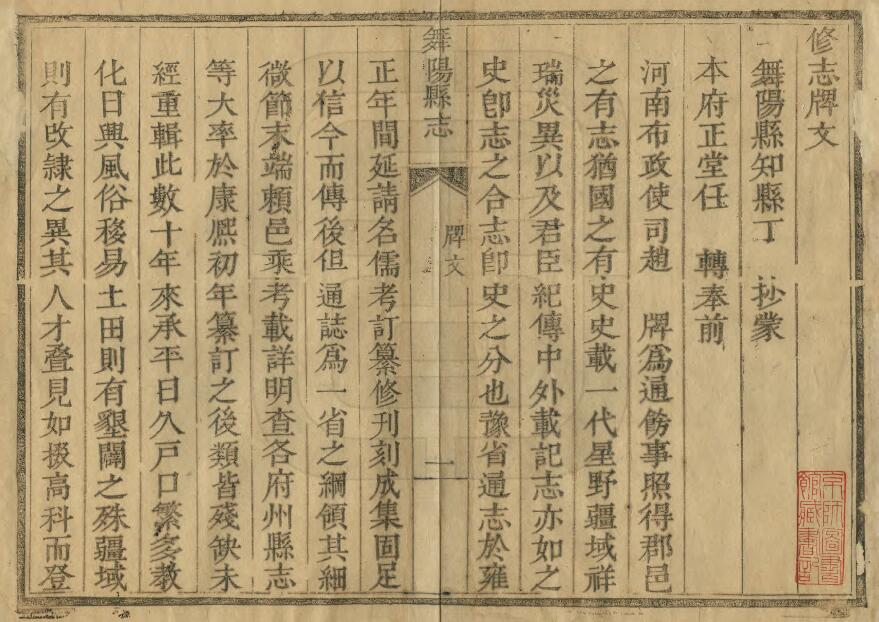 修志牌文
舞陽縣知縣丁　抄蒙
本府正堂任　轉奉前
河南布政使司趙　牌為通飭事照得郡邑
之有志猶國之有史史載一代星野疆域祥
瑞災異以及君臣紀傳中外載記志亦如之
史卽志之合志卽史之分也豫省通志於雍
舞陽縣志　牌文　一
正年間延請名儒考訂纂修刊刻成集固足
以信今而傳後但通誌為一省之綱領其細
微節末端賴邑乘考載詳明查各府州縣志
等大率於康熈初年纂訂之後類皆殘缺未
經重輯此數十年來承平日久戶口繁多教
化日興風俗移易土田則有墾闢之殊疆域
則有改隷之異其人才疊見如掇高科而登
京師圖書館藏書記